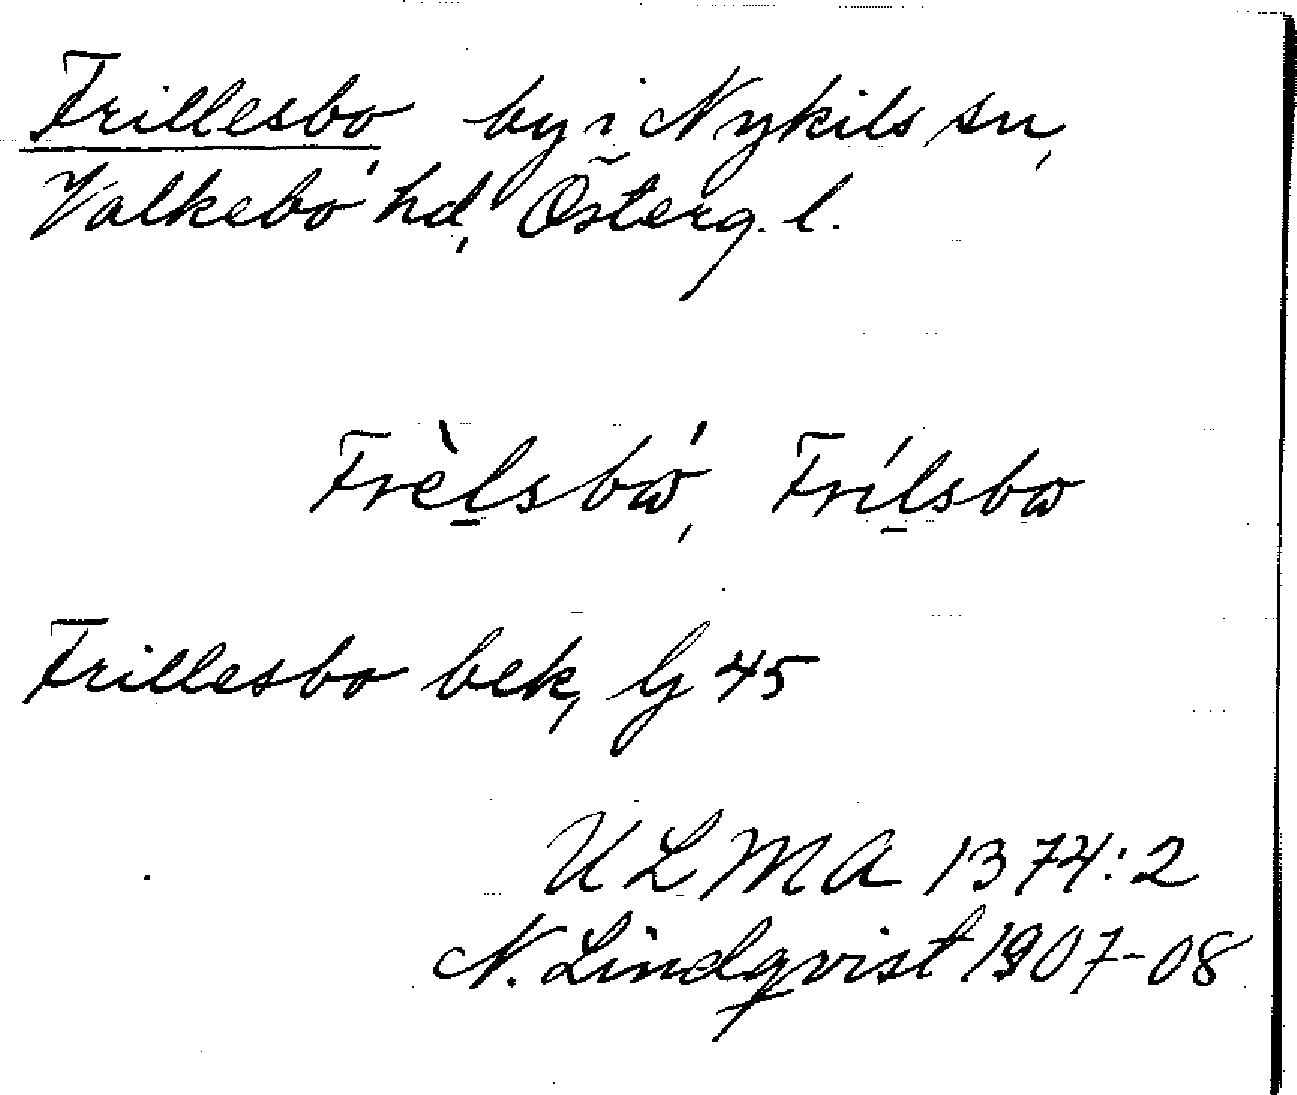 Frillesbo, by i Nykils sn,
Valkebo hd, Österg. l.
Frèḻsbώ, Fríḻsbω
Frillesbo bek, G 45
ULMA 1374:2
N. Lindqvist 1907-08